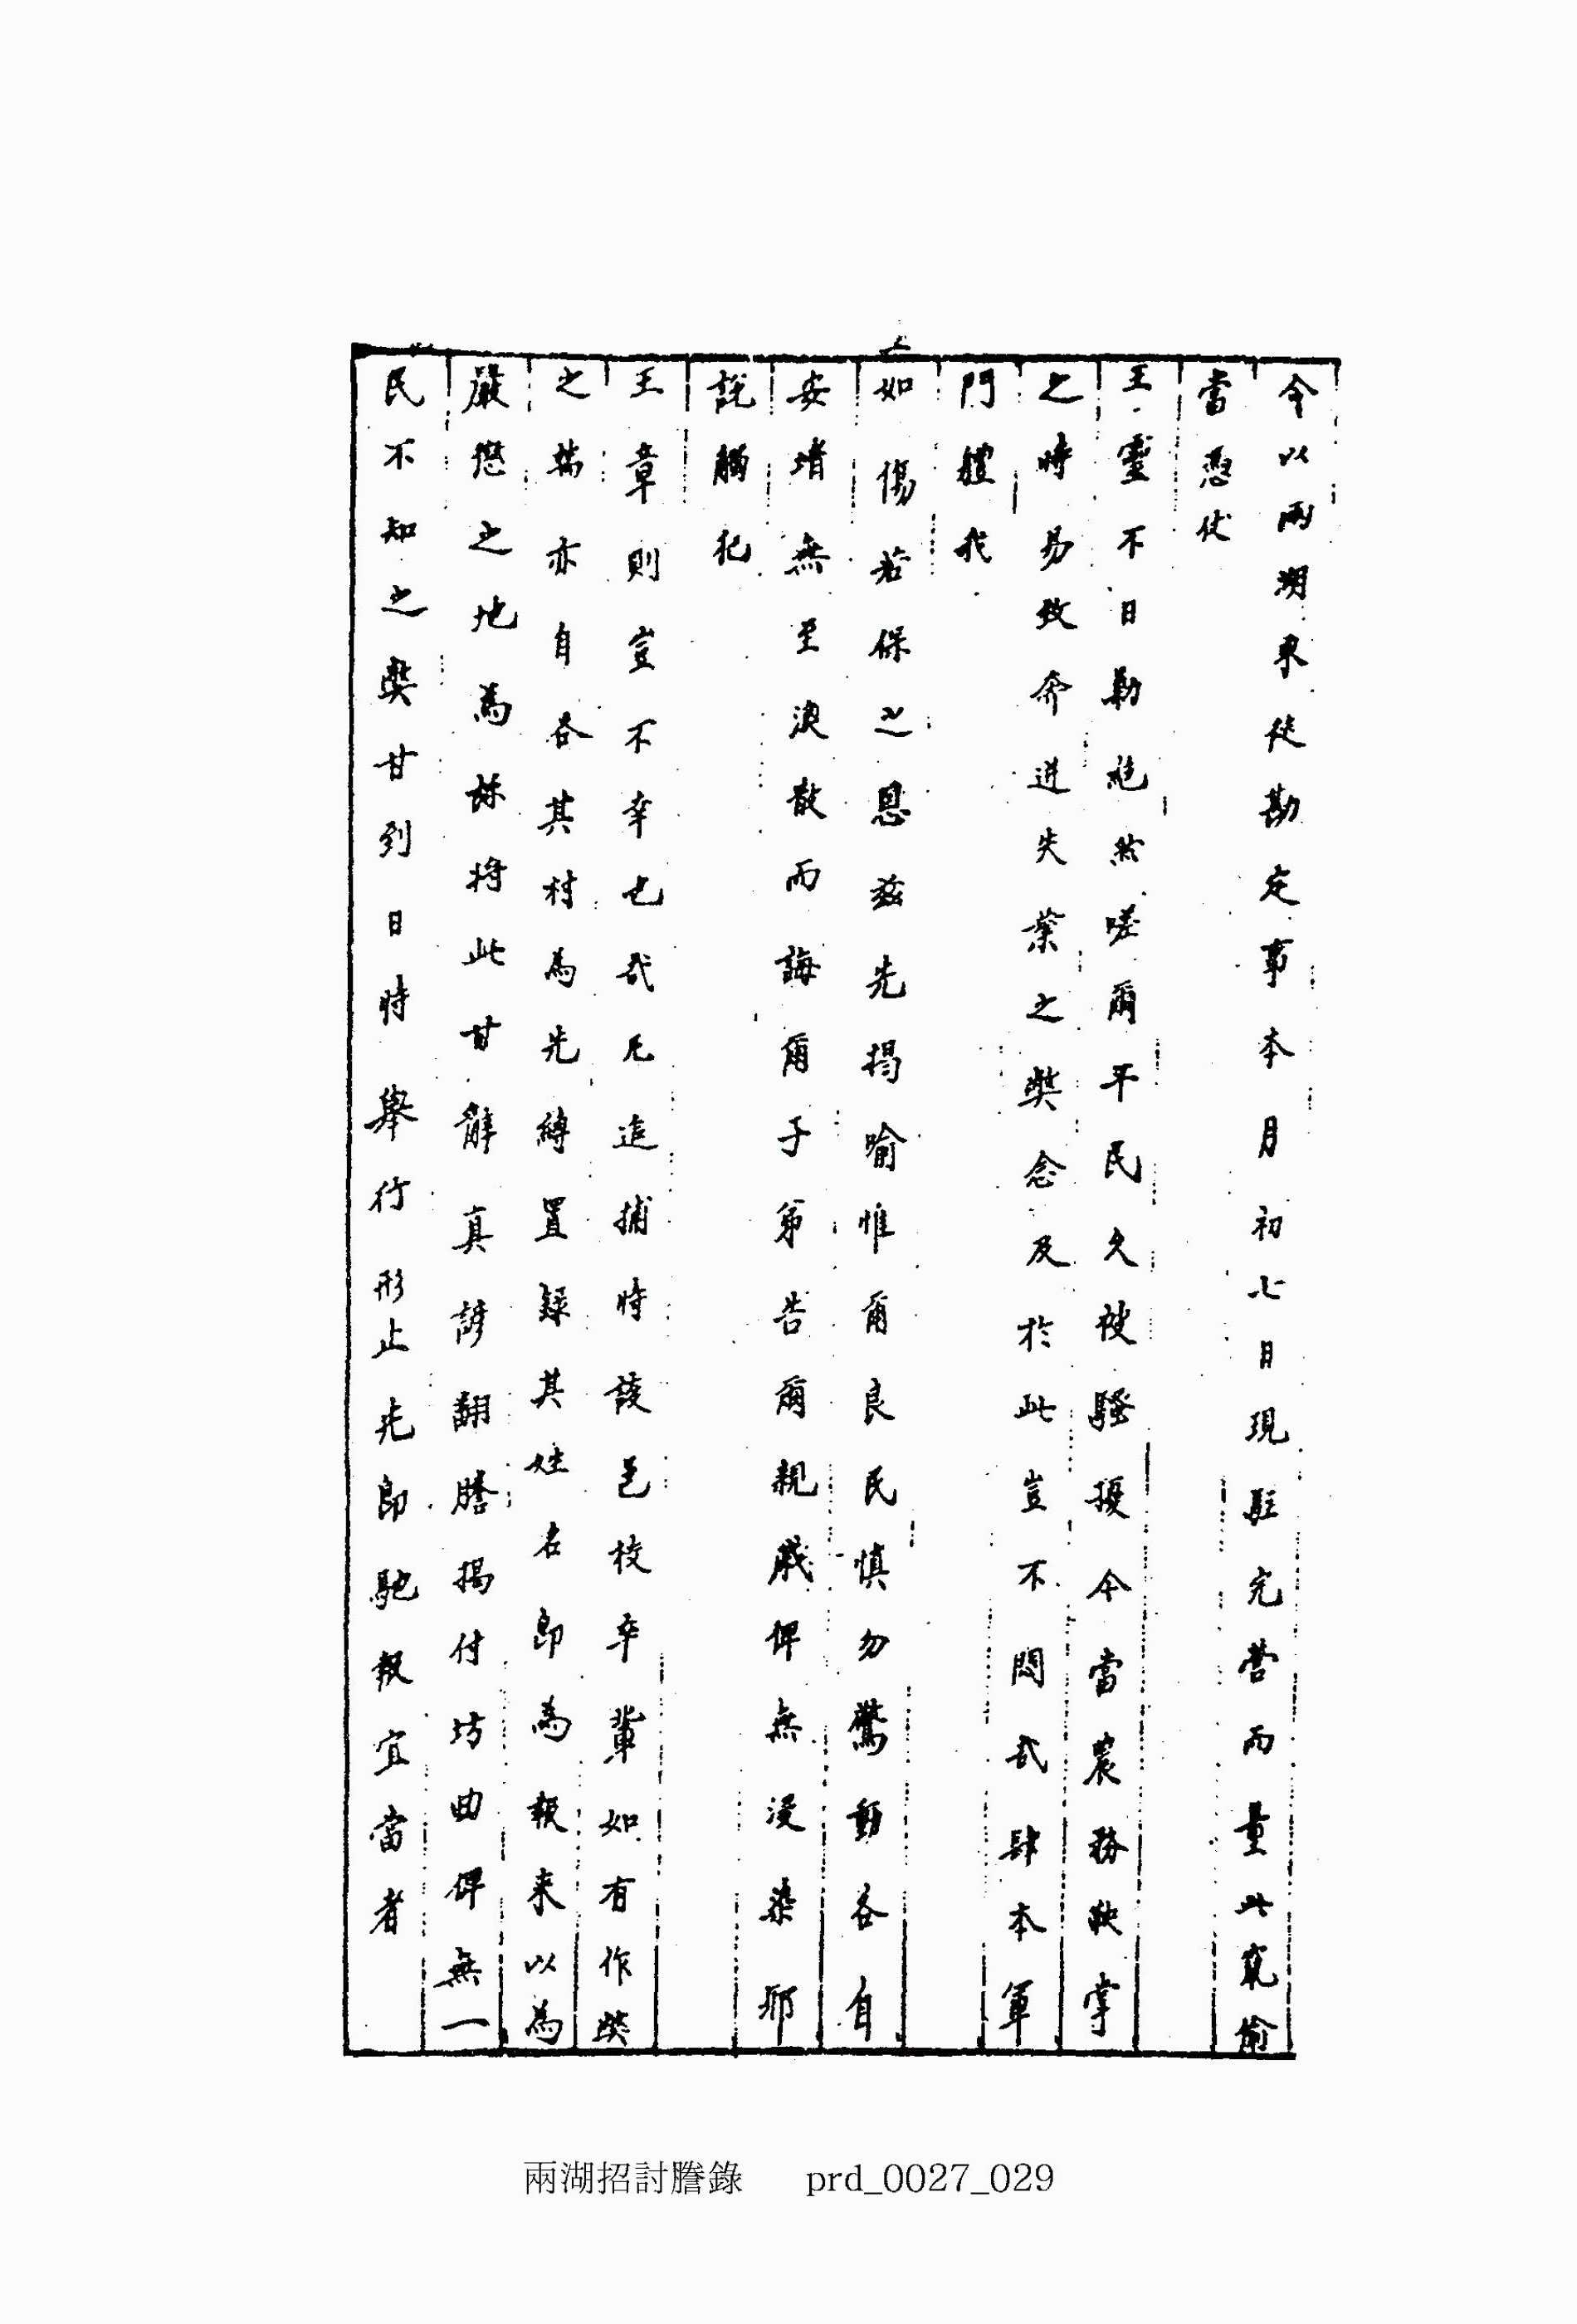 今以兩湖東徒勘定事本月初七日現駐完營而量此寇偷
當憑仗
王靈不日勦絕然嗟爾平民久被騷擾今當農務鞅掌
之時易致奔迸失業之弊念及於此豈不悶哉肆本軍
門體我
上
如傷若保之恩玆先揭喻惟爾良民愼勿驚動各自
安堵無至淚散而誨爾子弟告爾親戚俾無浸染邪
說觸犯
王章則豈不幸也哉凡追捕時該邑校卒輩如有作弊
之端亦自各其村爲先縛置錄其姓名卽爲報来以爲
嚴懲之地爲旀將此甘辭眞諺翻謄揭付坊曲俾無一
民不知之弊甘到日時擧行形止先卽馳報宜當者
兩湖招討謄錄 prd_0027_029